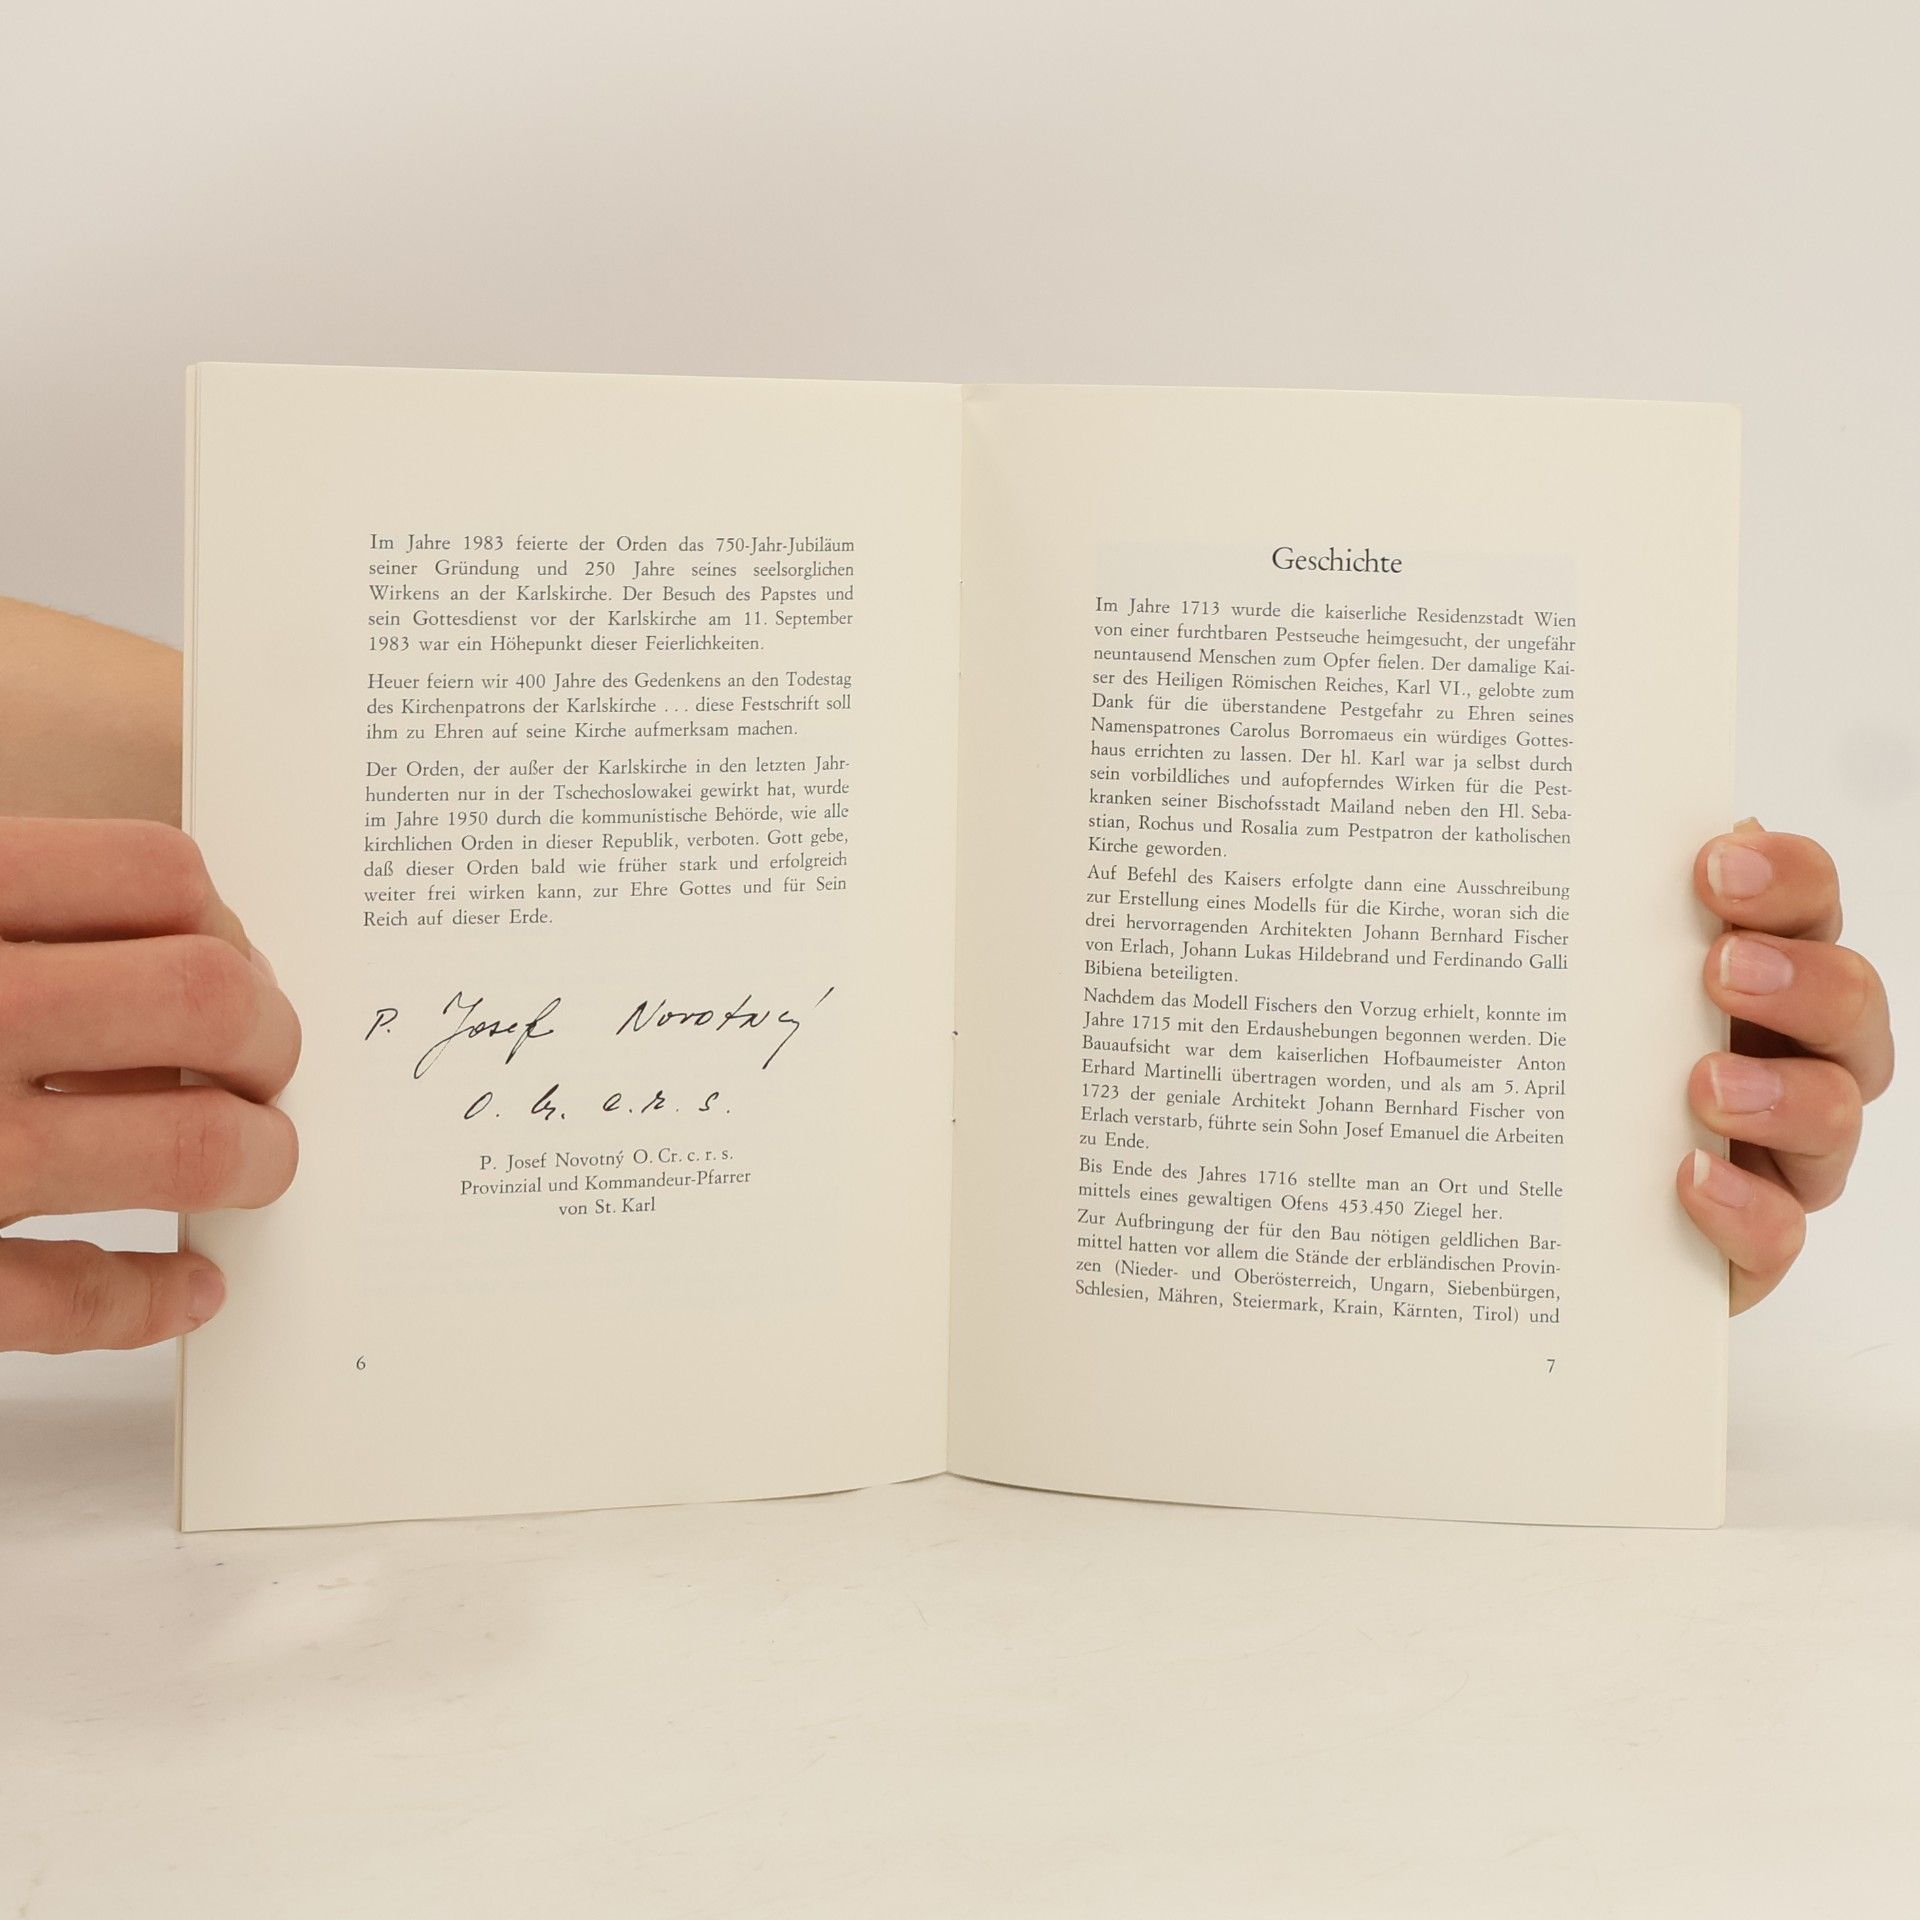 Im Jahre 1983 feierte der Orden das 750-Jahr-Jubiläum
seiner Gründung und 250 Jahre seines seelsorglichen
Wirkens an der Karlskirche. Der Besuch des Papstes und
sein Gottesdienst vor der Karlskirche am 11. September
1983 war ein Höhepunkt dieser Feierlichkeiten.
Heuer feiern wir 400 Jahre des Gedenkens an den Todestag
des Kirchenpatrons der Karlskirche ... diese Festschrift soll
ihm zu Ehren auf seine Kirche aufmerksam machen.
Der Orden, der außer der Karlskirche in den letzten Jahr-
hunderten nur in der Tschechoslowakei gewirkt hat, wurde
im Jahre 1950 durch die kommunistische Behörde, wie alle
kirchlichen Orden in dieser Republik, verboten. Gott gebe,
daß dieser Orden bald wie früher stark und erfolgreich
weiter frei wirken kann, zur Ehre Gottes und für Sein
Reich auf dieser Erde.
P. Josef Novotný
O. Cr. c. r. s.
P. Josef Novotný O. Cr. c. r. s.
Provinzial und Kommandeur-Pfarrer
von St. Karl
6
Geschichte
Im Jahre 1713 wurde die kaiserliche Residenzstadt Wien
von einer furchtbaren Pestseuche heimgesucht, der ungefähr
neuntausend Menschen zum Opfer fielen. Der damalige Kai-
ser des Heiligen Römischen Reiches, Karl VI., gelobte zum
Dank für die überstandene Pestgefahr zu Ehren seines
Namenspatrones Carolus Borromaeus ein würdiges Gottes-
haus errichten zu lassen. Der hl. Karl war ja selbst durch
sein vorbildliches und aufopferndes Wirken für die Pest-
kranken seiner Bischofsstadt Mailand neben den Hl. Seba-
stian, Rochus und Rosalia zum Pestpatron der katholischen
Kirche geworden.
Auf Befehl des Kaisers erfolgte dann eine Ausschreibung
zur Erstellung eines Modells für die Kirche, woran sich die
drei hervorragenden Architekten Johann Bernhard Fischer
von Erlach, Johann Lukas Hildebrand und Ferdinando Galli
Bibiena beteiligten.
Nachdem das Modell Fischers den Vorzug erhielt, konnte im
Jahre 1715 mit den Erdaushebungen begonnen werden. Die
Bauaufsicht war dem kaiserlichen Hofbaumeister Anton
Erhard Martinelli übertragen worden, und als am 5. April
1723 der geniale Architekt Johann Bernhard Fischer von
Erlach verstarb, führte sein Sohn Josef Emanuel die Arbeiten
zu Ende.
Bis Ende des Jahres 1716 stellte man an Ort und Stelle
mittels eines gewaltigen Ofens 453.450 Ziegel her.
Zur Aufbringung der für den Bau nötigen geldlichen Bar-
mittel hatten vor allem die Stände der erbländischen Provin-
zen (Nieder- und Oberösterreich, Ungarn, Siebenbürgen,
Schlesien, Mähren, Steiermark, Krain, Kärnten, Tirol) und
7